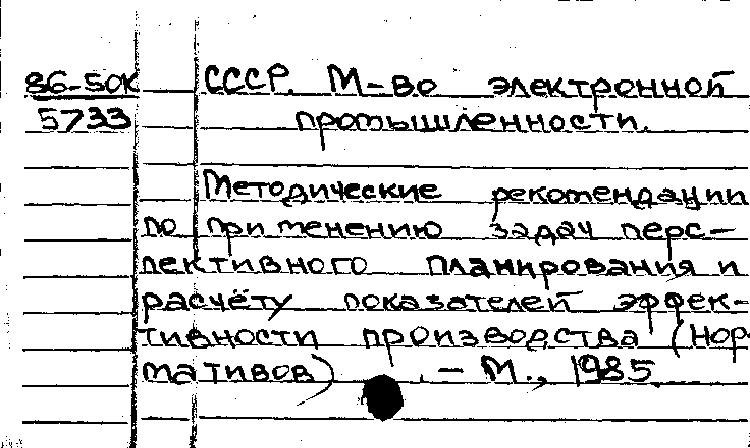 86-50К СССР. М-во электронной
5733 промышленности.
Методические рекомендации
по применению задач перс-
пективного планирования и
расчёту показателей эффек-
тивности производства (нор-
мативов). — М., 1985